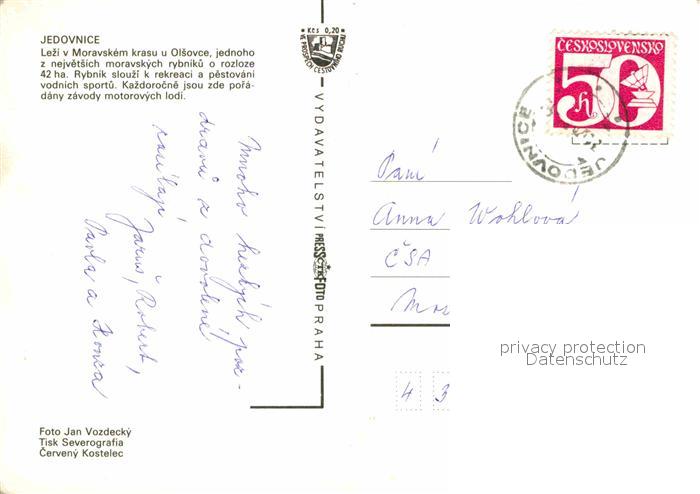 JEDOVNICE
Leží v Moravském krasu u Olšovce, jednoho
z největších moravských rybníků o rozloze
42 ha. Rybník slouží k rekreaci a pěstování
vodních sportů. Každoročně jsou zde pořá-
dány závody motorových lodí.
Kčs 0,20
VE PROSPĚCH CESTOVNÍHO RUCHU
VYDAVATELSTVÍ PRESSFOTO PRAHA
ČTK
Mnoho hezkých poz-
dravů z dovolené
zasílají Jarus, Robert,
Pavla a Honza
ČESKOSLOVENSKO
50
h
JEDOVNICE
Paní
Anna Wohlová
ČSA
Mo
4 3
privacy protection
Datenschutz
Foto Jan Vozdecký
Tisk Severografia
Červený Kostelec